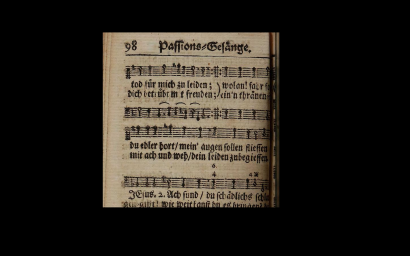 98 Passions-Gesänge.
tod für mich zu leiden; wolan! fahr
dich betrübt mit freuden; ein'n thränen-
du edler hort/ mein' augen sollen fliessen
mit ach und weh/ dein leiden zu begiessen
6
4
JEsus. 2. Ach sünd/ du schädlichs
wie weit